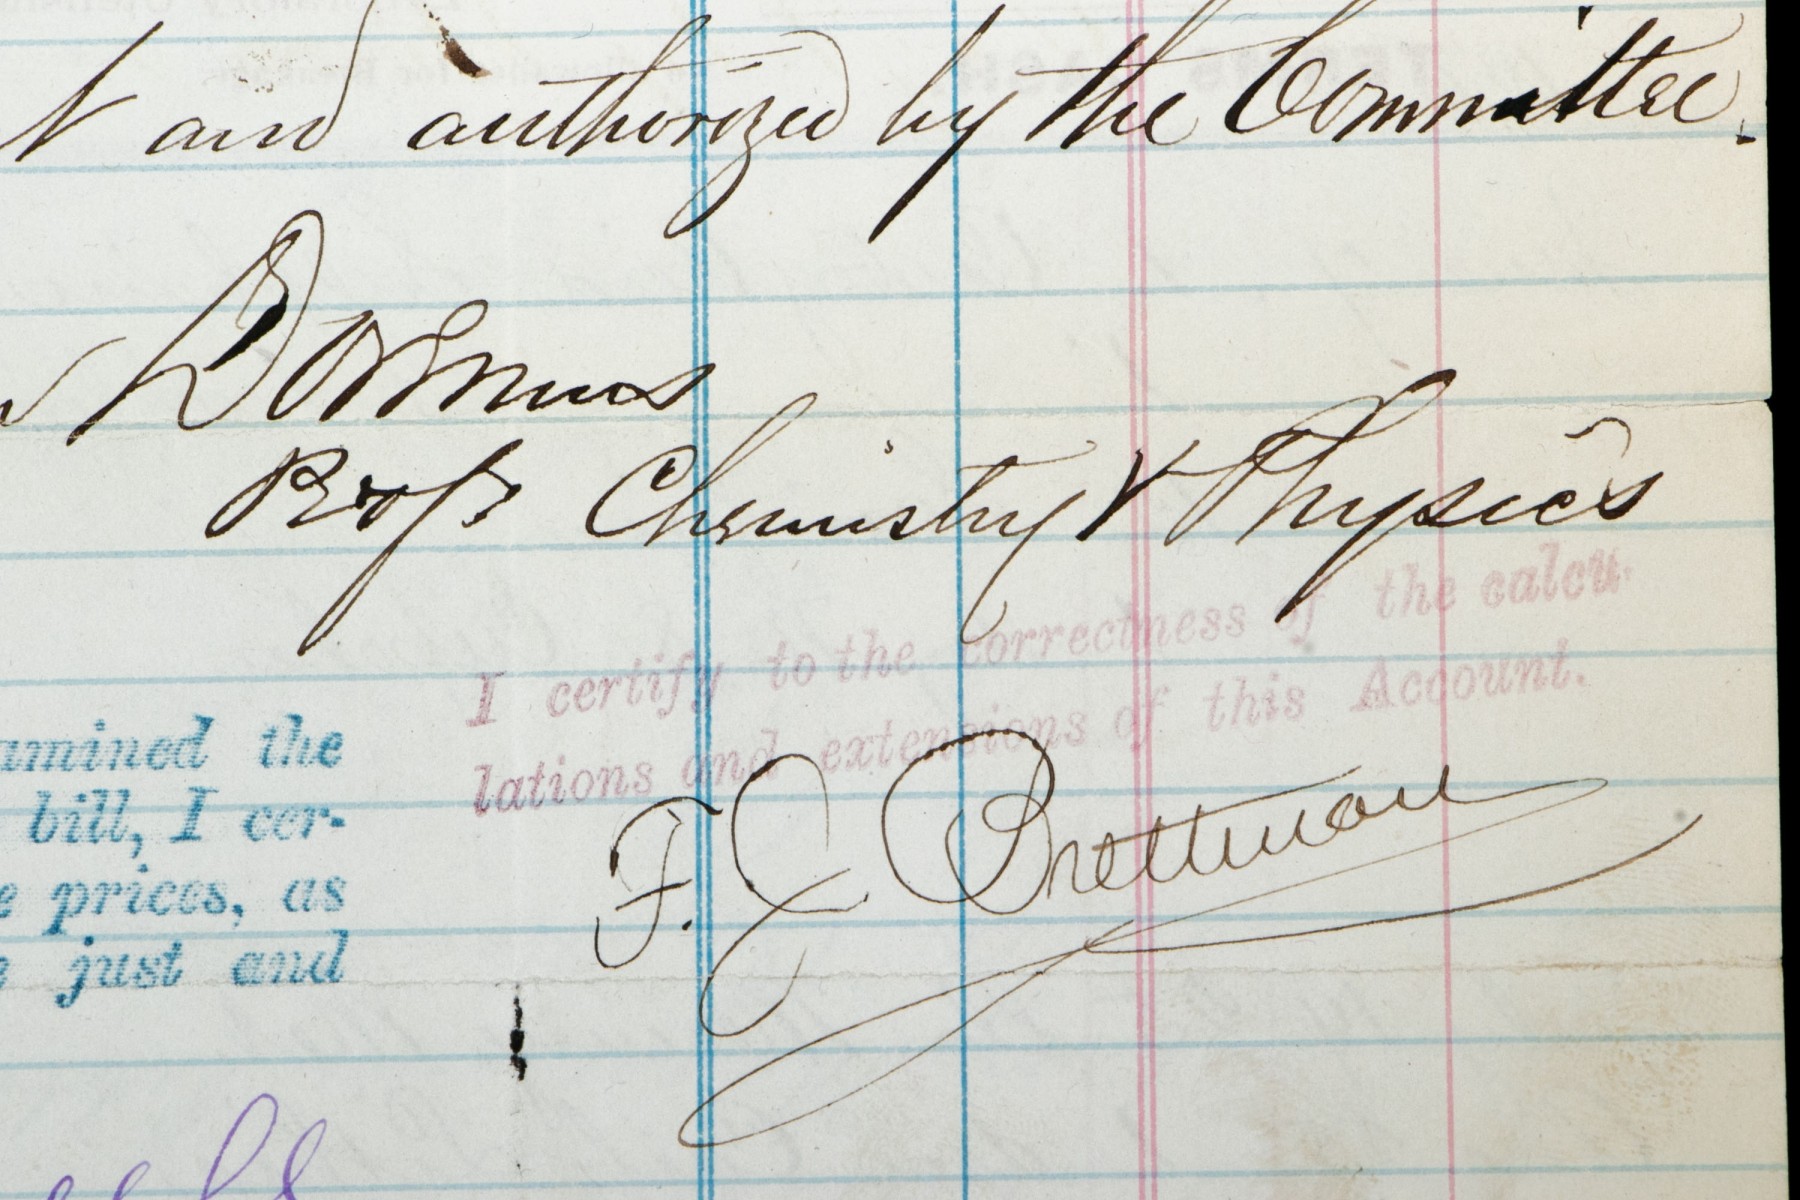 and authorized by the Committee.
Doremus
Profr Chemistry & Physics
I certify to the correctness of the calcu-
lations and extensions of this Account.
amined the
bill, I cer-
prices, as
just and
F. J. Brettman